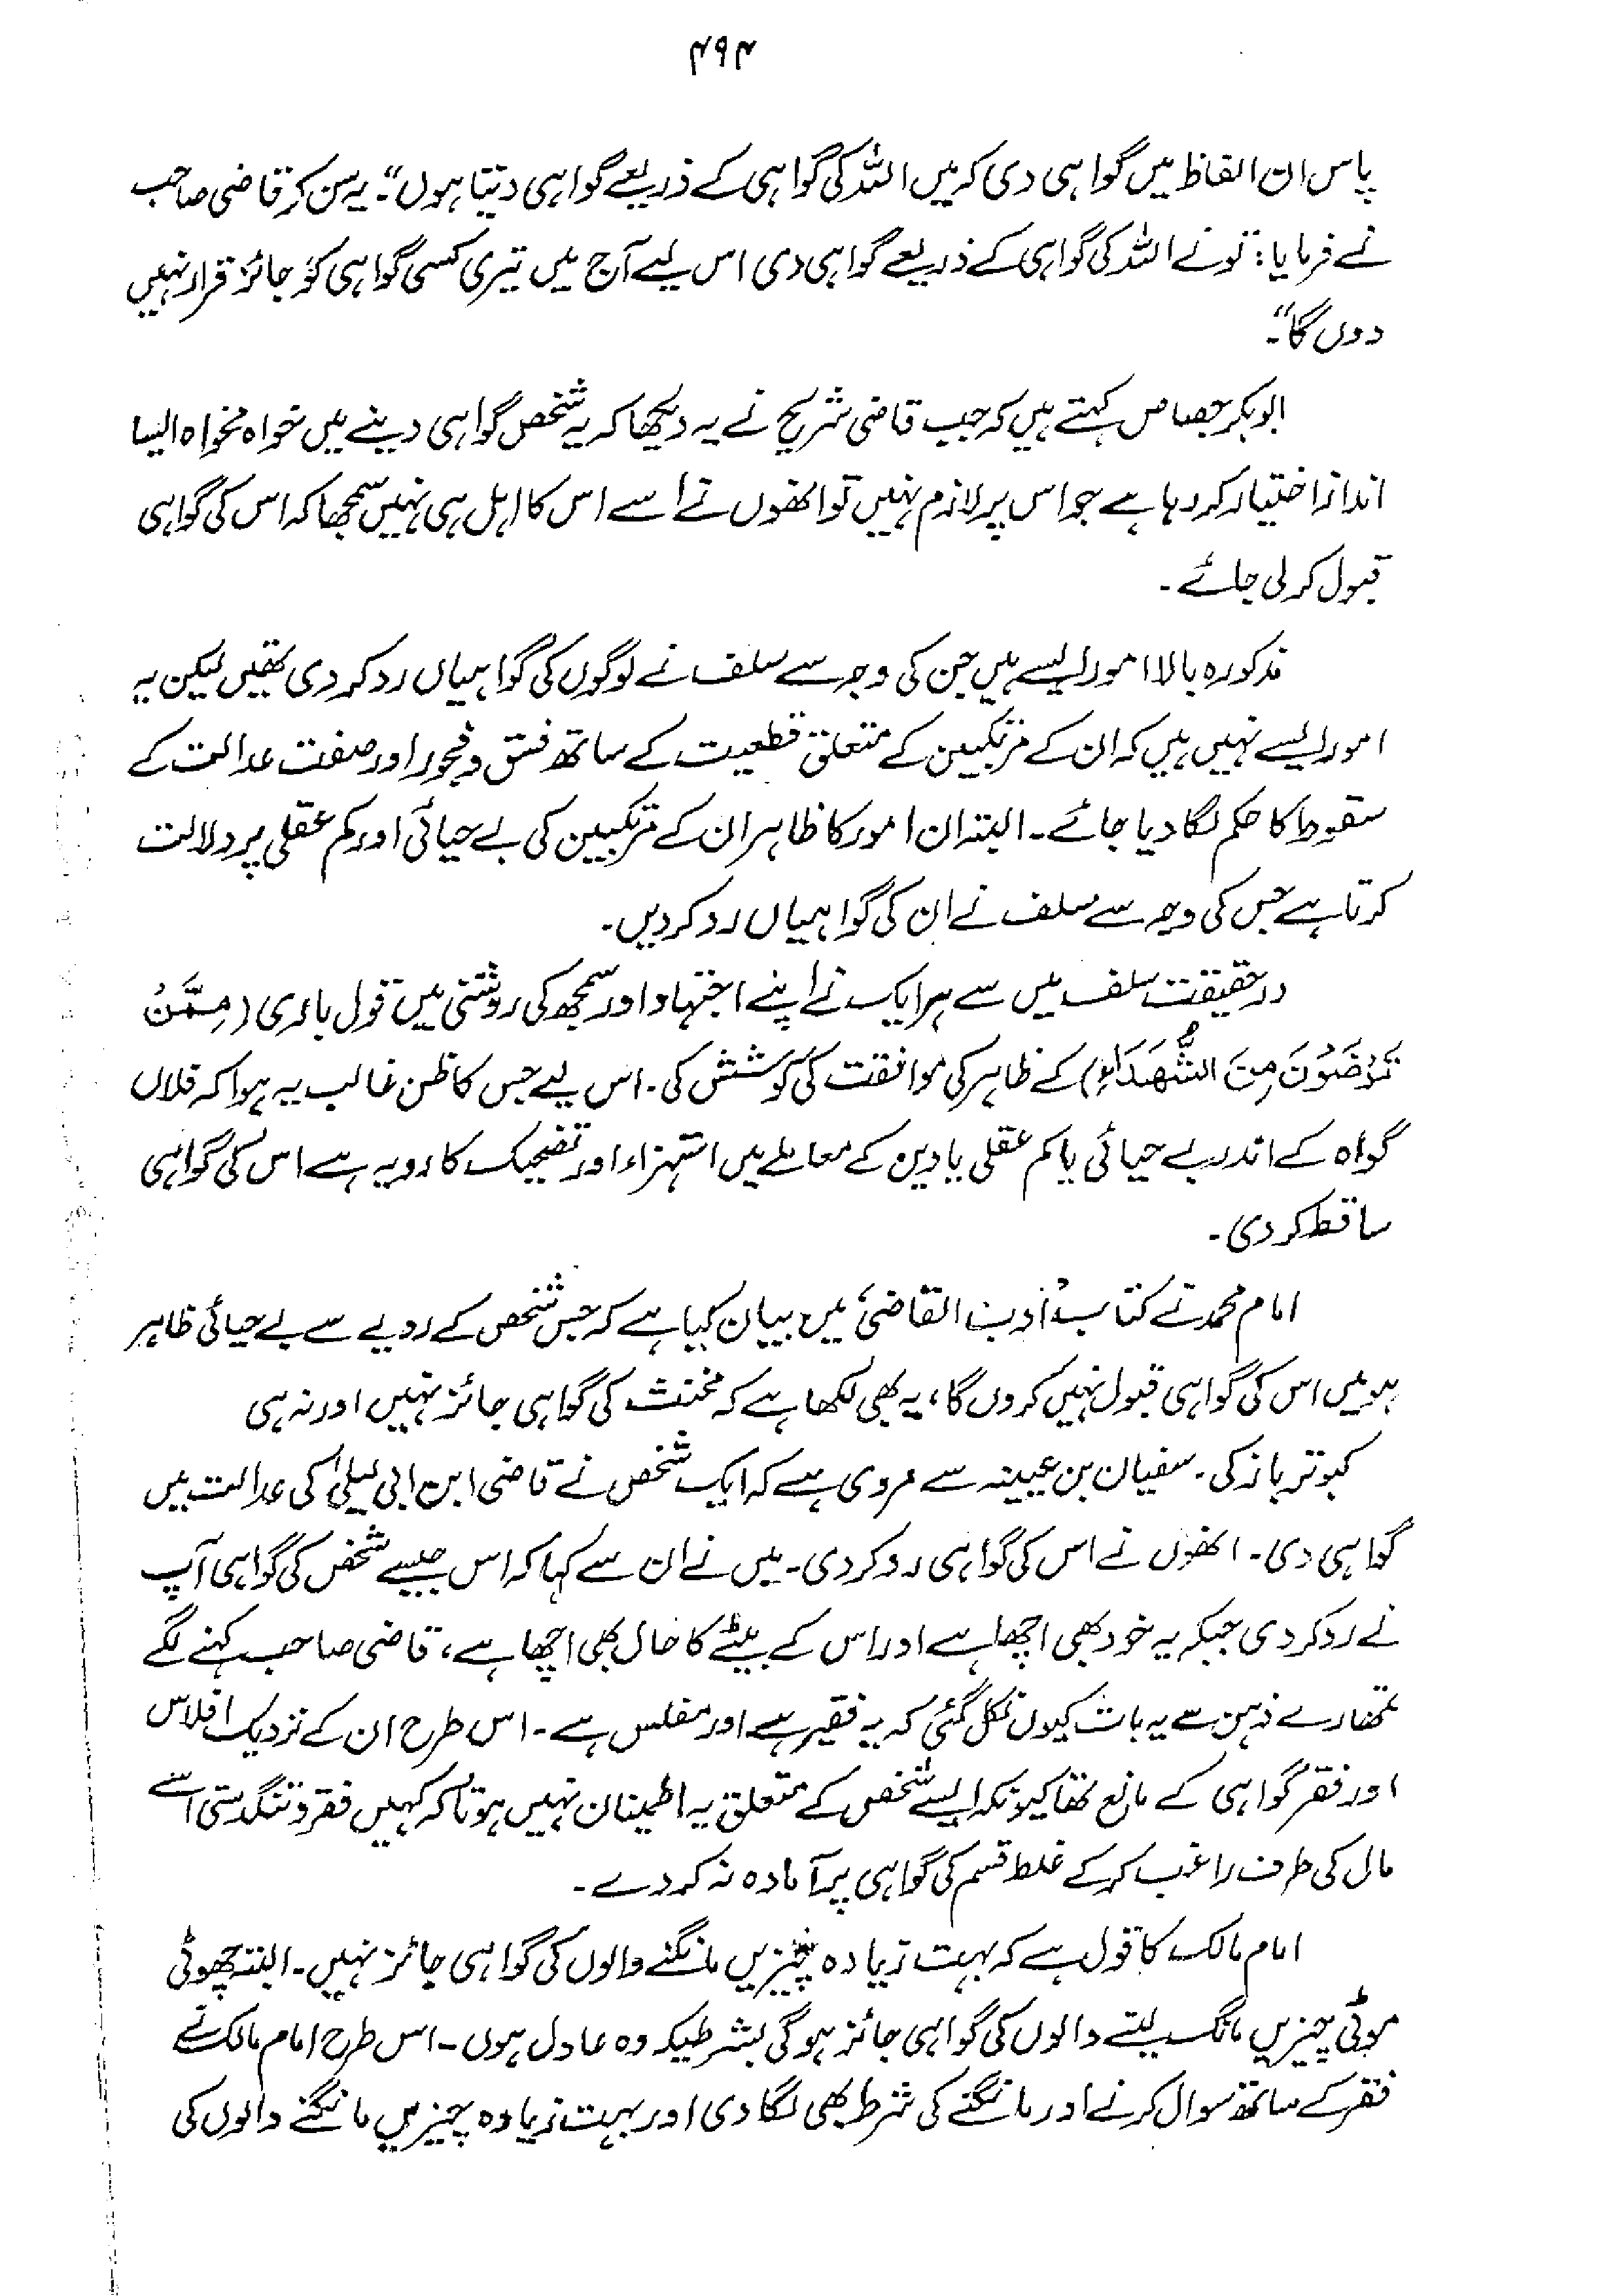 ۴۹۴
پاس ان الفاظ میں گواہی دی کہ میں اللہ کی گواہی کے ذریعے گواہی دیتا ہوں"۔ یہ سن کر قاضی صاحب
نے فرمایا: "تو نے اللہ کی گواہی کے ذریعے گواہی دی اس لیے آج میں تیری کسی گواہی کو جائز قرار نہیں
دوں گا"۔
ابوبکر جصاص کہتے ہیں کہ جب قاضی شریح نے یہ دیکھا کہ یہ شخص گواہی دینے میں خواہ مخواہ ایسا
انداز اختیار کر رہا ہے جو اس پر لازم نہیں تو انھوں نے اسے اس کا اہل ہی نہیں سمجھا کہ اس کی گواہی
قبول کر لی جائے۔
مذکورہ بالا امور ایسے ہیں جن کی وجہ سے سلف نے لوگوں کی گواہیاں رد کر دی تھیں لیکن یہ
امور ایسے نہیں ہیں کہ ان کے مرتکبین کے متعلق قطعیت کے ساتھ فسق و فجور اور صفت عدالت کے
سقوط کا حکم لگا دیا جائے۔ البتہ ان امور کا ظاہر ان کے مرتکبین کی بے حیائی اور کم عقلی پر دلالت
کرتا ہے جس کی وجہ سے سلف نے ان کی گواہیاں رد کر دیں۔
در حقیقت سلف میں سے ہر ایک نے اپنے اجتہاد اور سمجھ کی روشنی میں قول باری (مِمَّنْ
تَرْضَوْنَ مِنَ الشُّهَدَاءِ) کے ظاہر کی موافقت کی کوشش کی۔ اس لیے جس کا ظن غالب یہ ہوا کہ فلاں
گواہ کے اندر بے حیائی یا کم عقلی یا دین کے معاملے میں استہزاء اور تضحیک کا رویہ ہے اس کی گواہی
ساقط کر دی۔
امام محمد نے کتاب 'ادب القاضی' میں بیان کیا ہے کہ جس شخص کے رویے سے بے حیائی ظاہر
ہو میں اس کی گواہی قبول نہیں کروں گا، یہ بھی لکھا ہے کہ مخنث کی گواہی جائز نہیں اور نہ ہی
کبوتر باز کی۔ سفیان بن عیینہ سے مروی ہے کہ ایک شخص نے قاضی ابن ابی لیلیٰ کی عدالت میں
گواہی دی۔ انھوں نے اس کی گواہی رد کر دی۔ میں نے ان سے کہا کہ اس جیسے شخص کی گواہی آپ
نے رد کر دی جبکہ یہ خود بھی اچھا ہے اور اس کے بیٹے کا حال بھی اچھا ہے، قاضی صاحب کہنے لگے
تمھارے ذہن سے یہ بات کیوں نکل گئی کہ یہ فقیر ہے اور مفلس ہے۔ اس طرح ان کے نزدیک افلاس
اور فقر گواہی کے مانع تھا کیونکہ ایسے شخص کے متعلق یہ اطمینان نہیں ہوتا کہ کہیں فقر و تنگدستی اسے
مال کی طرف راغب کر کے غلط قسم کی گواہی پر آمادہ نہ کر دے۔
امام مالک کا قول ہے کہ بہت زیادہ چیزیں مانگنے والوں کی گواہی جائز نہیں۔ البتہ چھوٹی
موٹی چیزیں مانگ لینے والوں کی گواہی جائز ہو گی بشرطیکہ وہ عادل ہوں۔ اس طرح امام مالک نے
فقر کے ساتھ سوال کرنے اور مانگنے کی شرط بھی لگا دی اور بہت زیادہ چیزیں مانگنے والوں کی